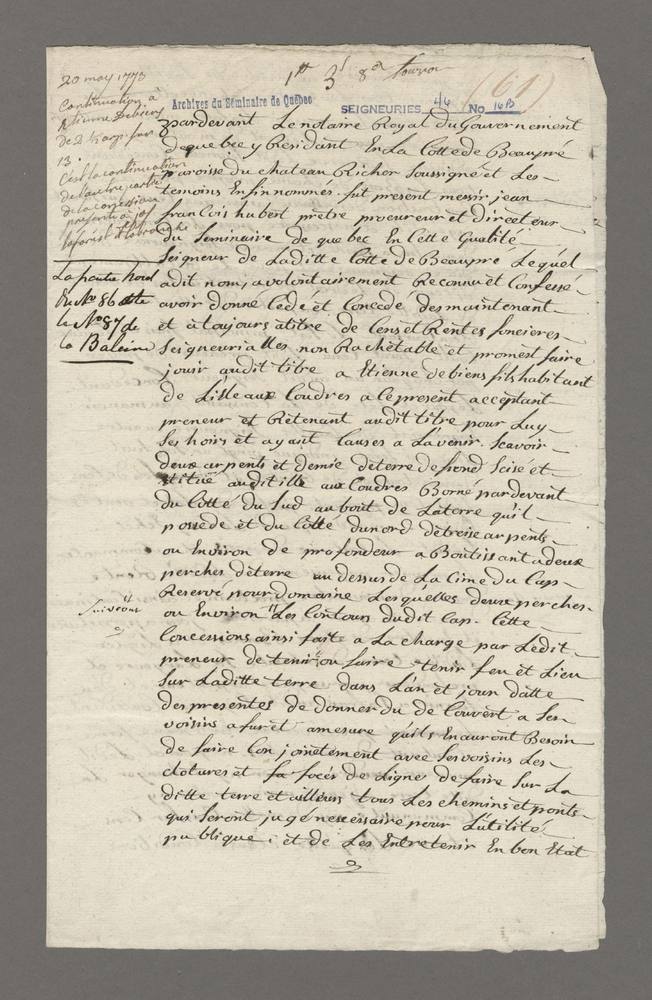 20 may 1773
1tt 3s 8d tournoi
(61)
Continuation à
Etienne Debiens
De 2 ½ arp. sur
13.
C'est la continuation
de l'autre partie
de la concession
présente à jos
laforest
Archives du Séminaire de Québec
SEIGNEURIES 46 No 16B
La partie Nord
du No 86 et
le No 87 de
la Baleine
pardevant Le notaire Royal du Gouvernement
de quebec y Résidant En La Cotte de Beaupré
paroisse du chateau Richer soussigné et Les
temoins Enfin nommes. fut present messir jean
francois hubert prêtre procureur et directeur
du Seminaire de quebec En Cette Qualité
Seigneur de Laditte Cotte de Beaupré Lequel
adit nom, a volontairement Reconnu et Confessé
avoir donne Cedé et Concedé des maintenant
et à toujours atitre de Cens et Rentes foncieres
Seigneurialles non Rachetable et promest faire
jouir audit titre a Etienne debiens fils habitant
de Lille aux Coudres a Ce present acceptant
preneur et Retenant audit titre pour Luy
Ses hoirs et ayant Causes a Lavenir. Scavoir
deux arpents et demie de terre de frond Scise et
situé audit ille aux Coudres Borné pardevant
du Cotté du Sud au bout de Laterre quil
possede et du Cotté du nord de treise arpents
ou Environ de profondeur a Boutissant a deux
perches de terre au dessus de La Cime du Cap
Reservé pour domaine Lesquelles deux perches
ou Environ " Les Contours dudit Cap. Cette
"
Suiveront
Concessions ainsi faite a La charge par Ledit
preneur de tenir ou faire tenir feu et Lieu
Sur Laditte terre dans L'an et jour datte
des presentes de donner du de Couvert a Ses
voisins a fur et amesure quils En auront Besoin
de faire Conjointement avec Ses voisins Les
clotures et fa focés de Ligne de faire Sur La
ditte terre et ailleurs tous Les chemins et ponts
qui Seront jugé necessaire pour L'utilité
publique; et de Les Entretenir En bon Etat